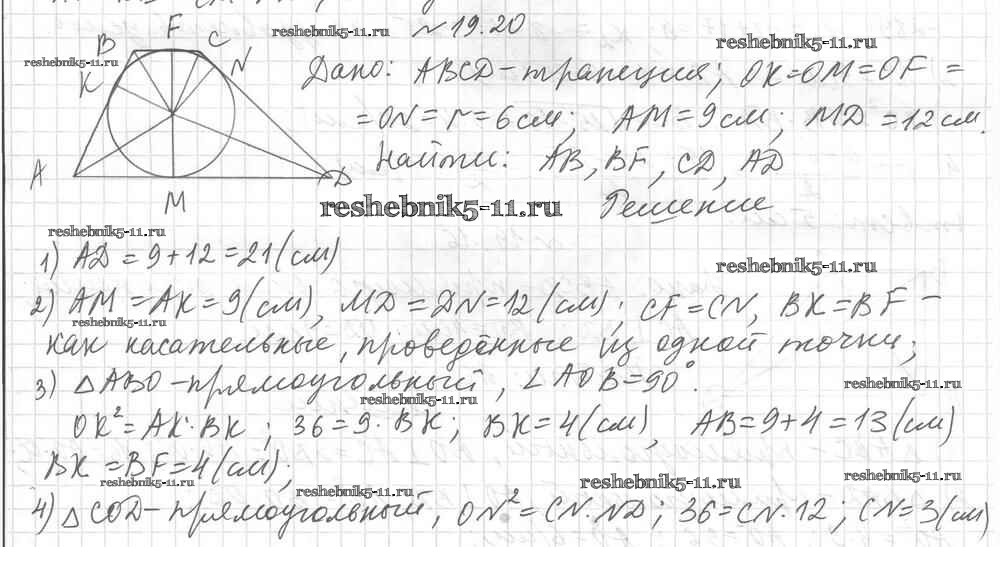 reshebnik5-11.ru № 19.20
B F C N K A M D
reshebnik5-11.ru
reshebnik5-11.ru
Дано: ABCD - трапеция; OK=OM=OF=
=ON=r=6см; AM=9см; MD=12см.
Найти: AB, BF, CD, AD
reshebnik5-11.ru Решение
reshebnik5-11.ru
1) AD=9+12=21(см)
reshebnik5-11.ru
2) AM=AK=9(см), MD=DN=12(см); CF=CN, BK=BF -
reshebnik5-11.ru
как касательные, проведённые из одной точки;
3) △ABO - прямоугольный, ∠AOB=90°.
reshebnik5-11.ru
reshebnik5-11.ru
OK²=AK·BK; 36=9·BK; BK=4(см), AB=9+4=13(см)
BK=BF=4(см);
reshebnik5-11.ru
reshebnik5-11.ru
reshebnik5-11.ru
reshebnik5-11.ru
4) △COD - прямоугольный, ON²=CN·ND; 36=CN·12; CN=3(см)